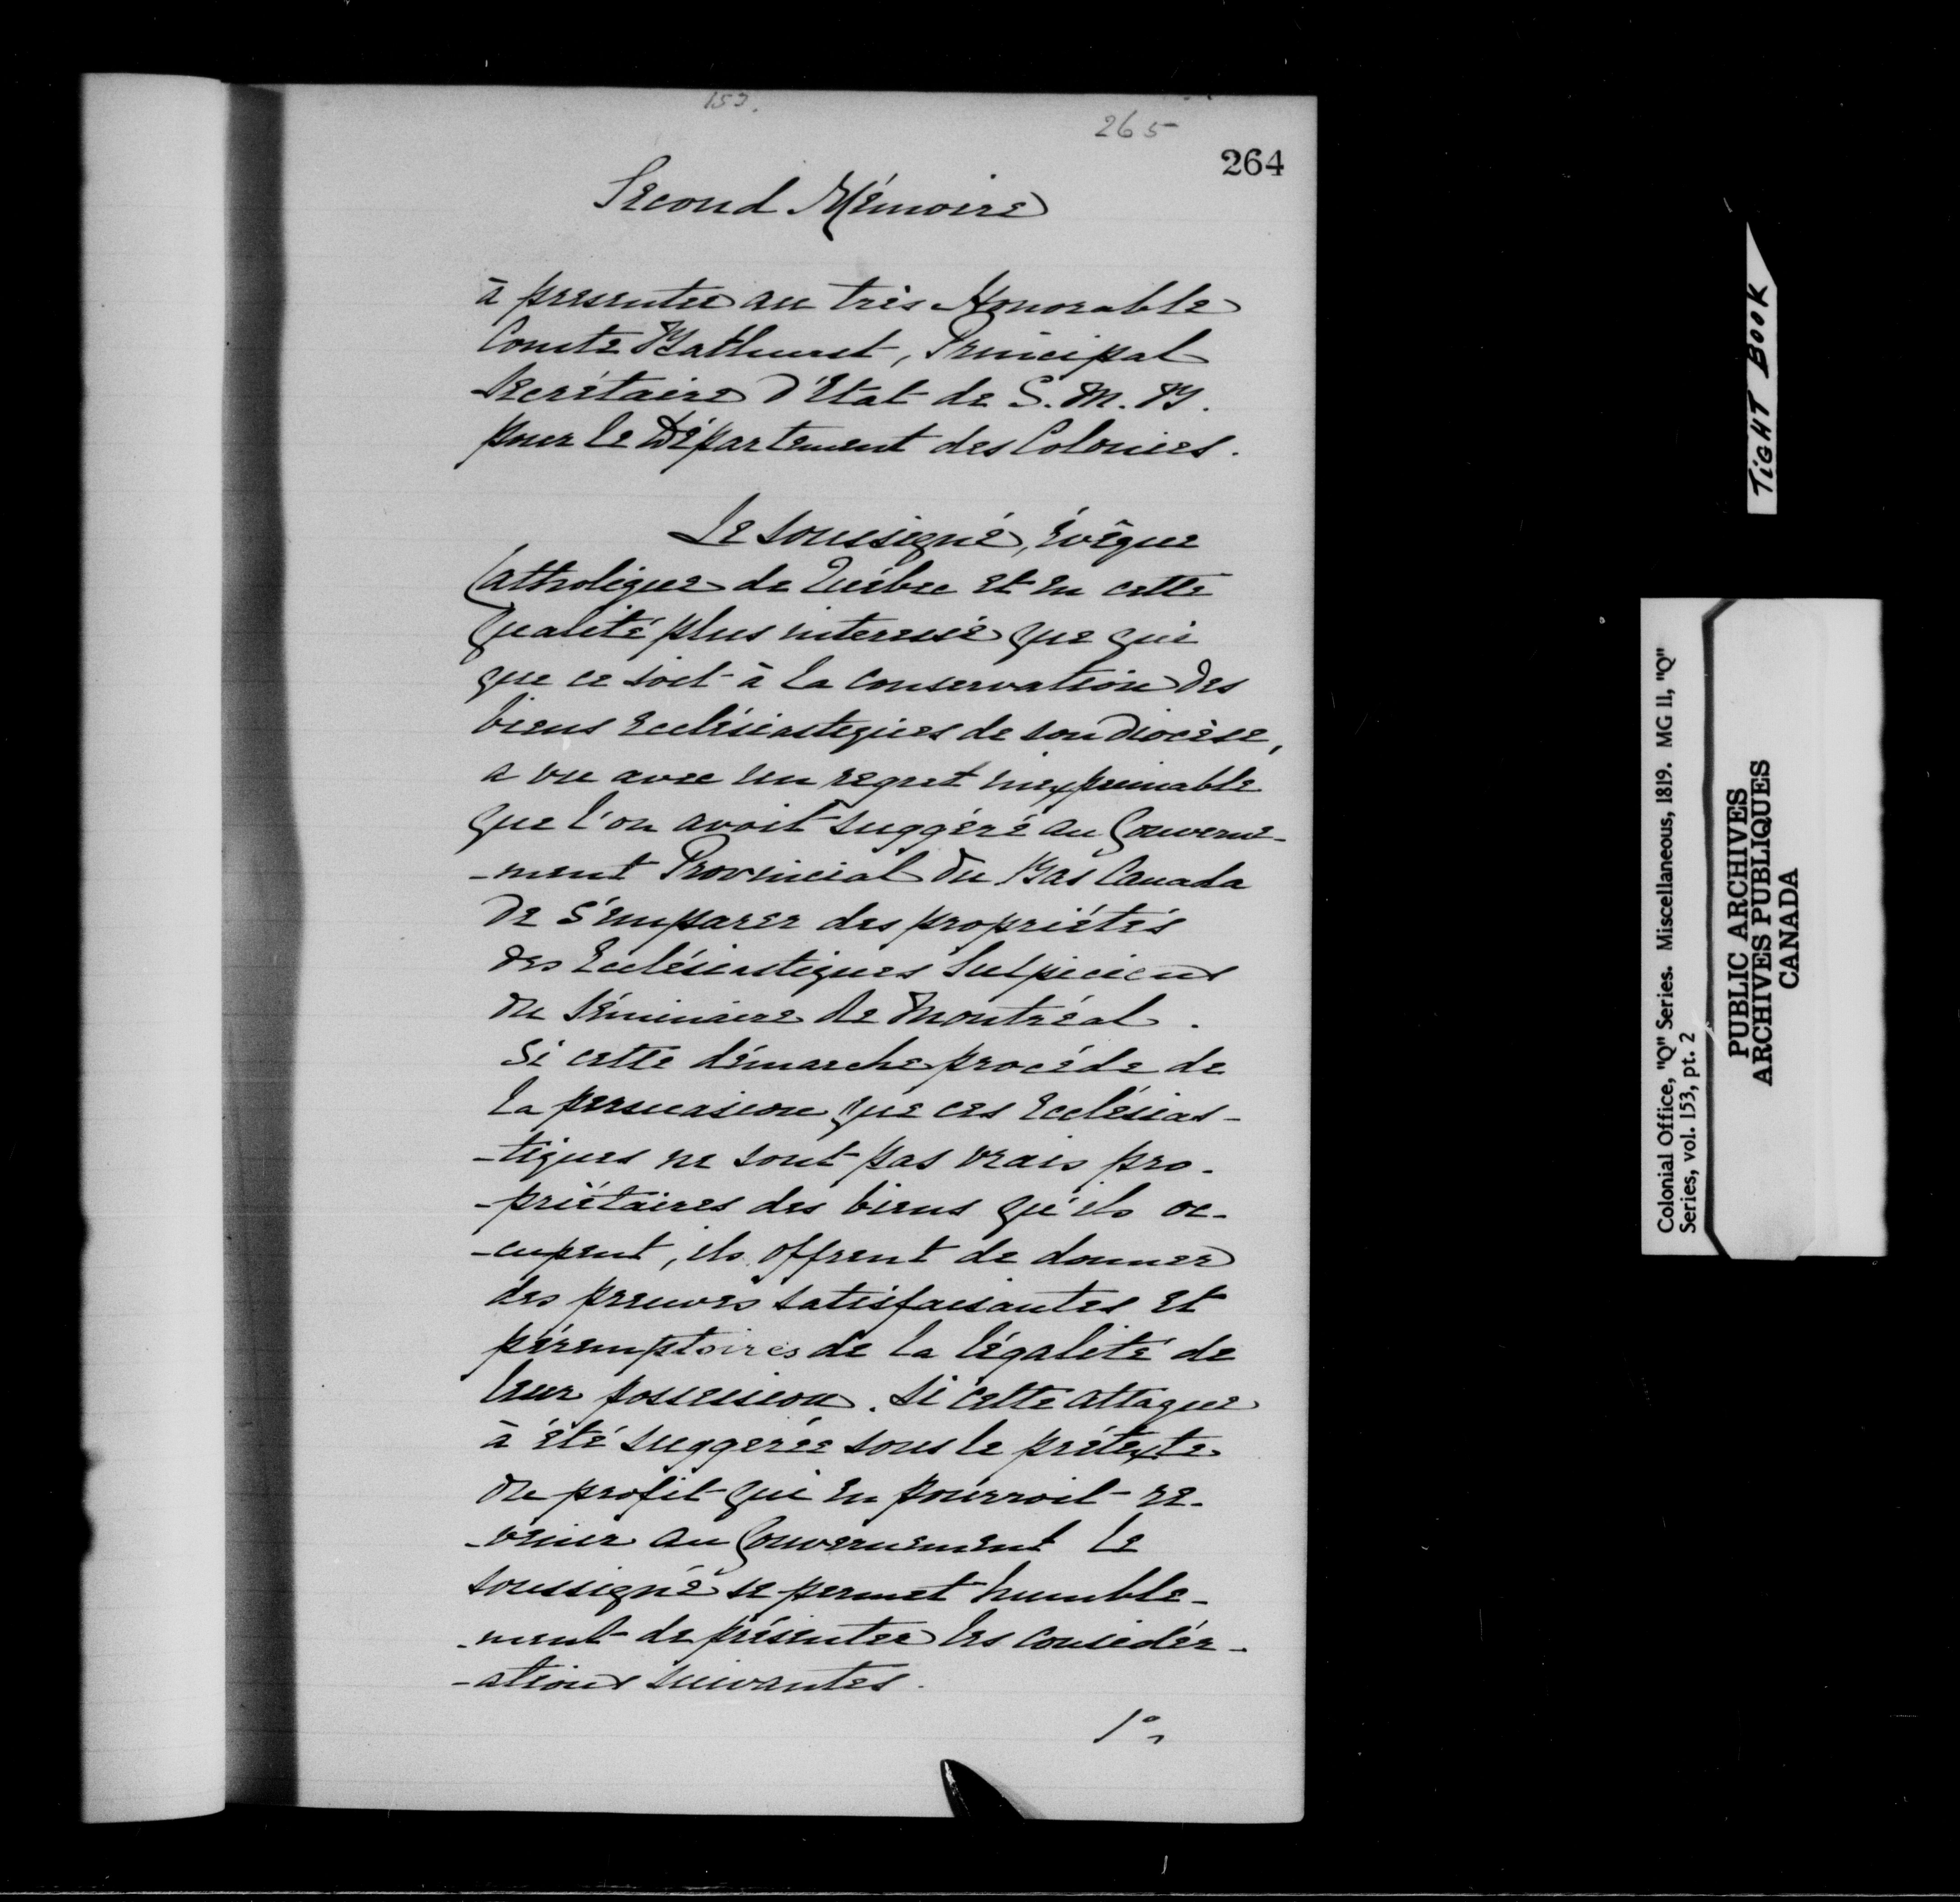 153.
265
264
Second Mémoire
à presenter au très Honorable
Comte Bathurst, Principal
Secrétaire d'Etat de S. M. B.
pour le Département des Colonies.
Le soussigné, Évêque
Catholique de Québec et en cette
qualité plus interessé que qui
que ce soit à la conservation des
biens Ecclésiastiques de son Diocèse,
a vu avec un regret inexprimable
que l'on avoit suggéré au Gouverne-
-ment Provincial du Bas Canada
de s'emparer des propriétés
des Ecclésiastiques Sulpiciens
du Séminaire de Montréal.
Si cette démarche procéde de
la persuasion que ces Ecclésias-
-tiques ne sont pas vrais pro-
-priétaires des biens qu'ils oc-
-cupent, ils offrent de donner
des preuves satisfaisantes et
péremptoires de la légalité de
leur possession. Si cette attaque
à été suggerée sous le prétexte
du profit qui en pourroit re-
-venir au Gouvernement le
soussigné se permet humble-
-ment de présenter les considér-
-ations suivantes.
1°
TIGHT BOOK
Colonial Office, "Q" Series. Miscellaneous, 1819. MG 11, "Q"
Series, vol. 153, pt. 2
PUBLIC ARCHIVES
ARCHIVES PUBLIQUES
CANADA